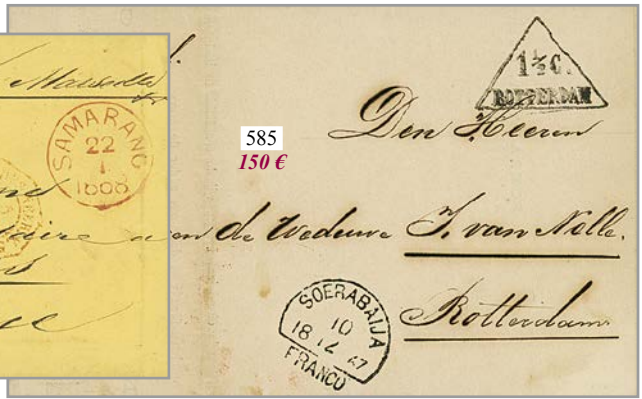 Marseille
SAMARANG
22
1
1868
585
150 €
1½ C.
ROTTERDAM
Den Heeren
aan de Weduwe J. van Nelle.
Rotterdam
SOERABAIJA
10
18 12 47
FRANCO